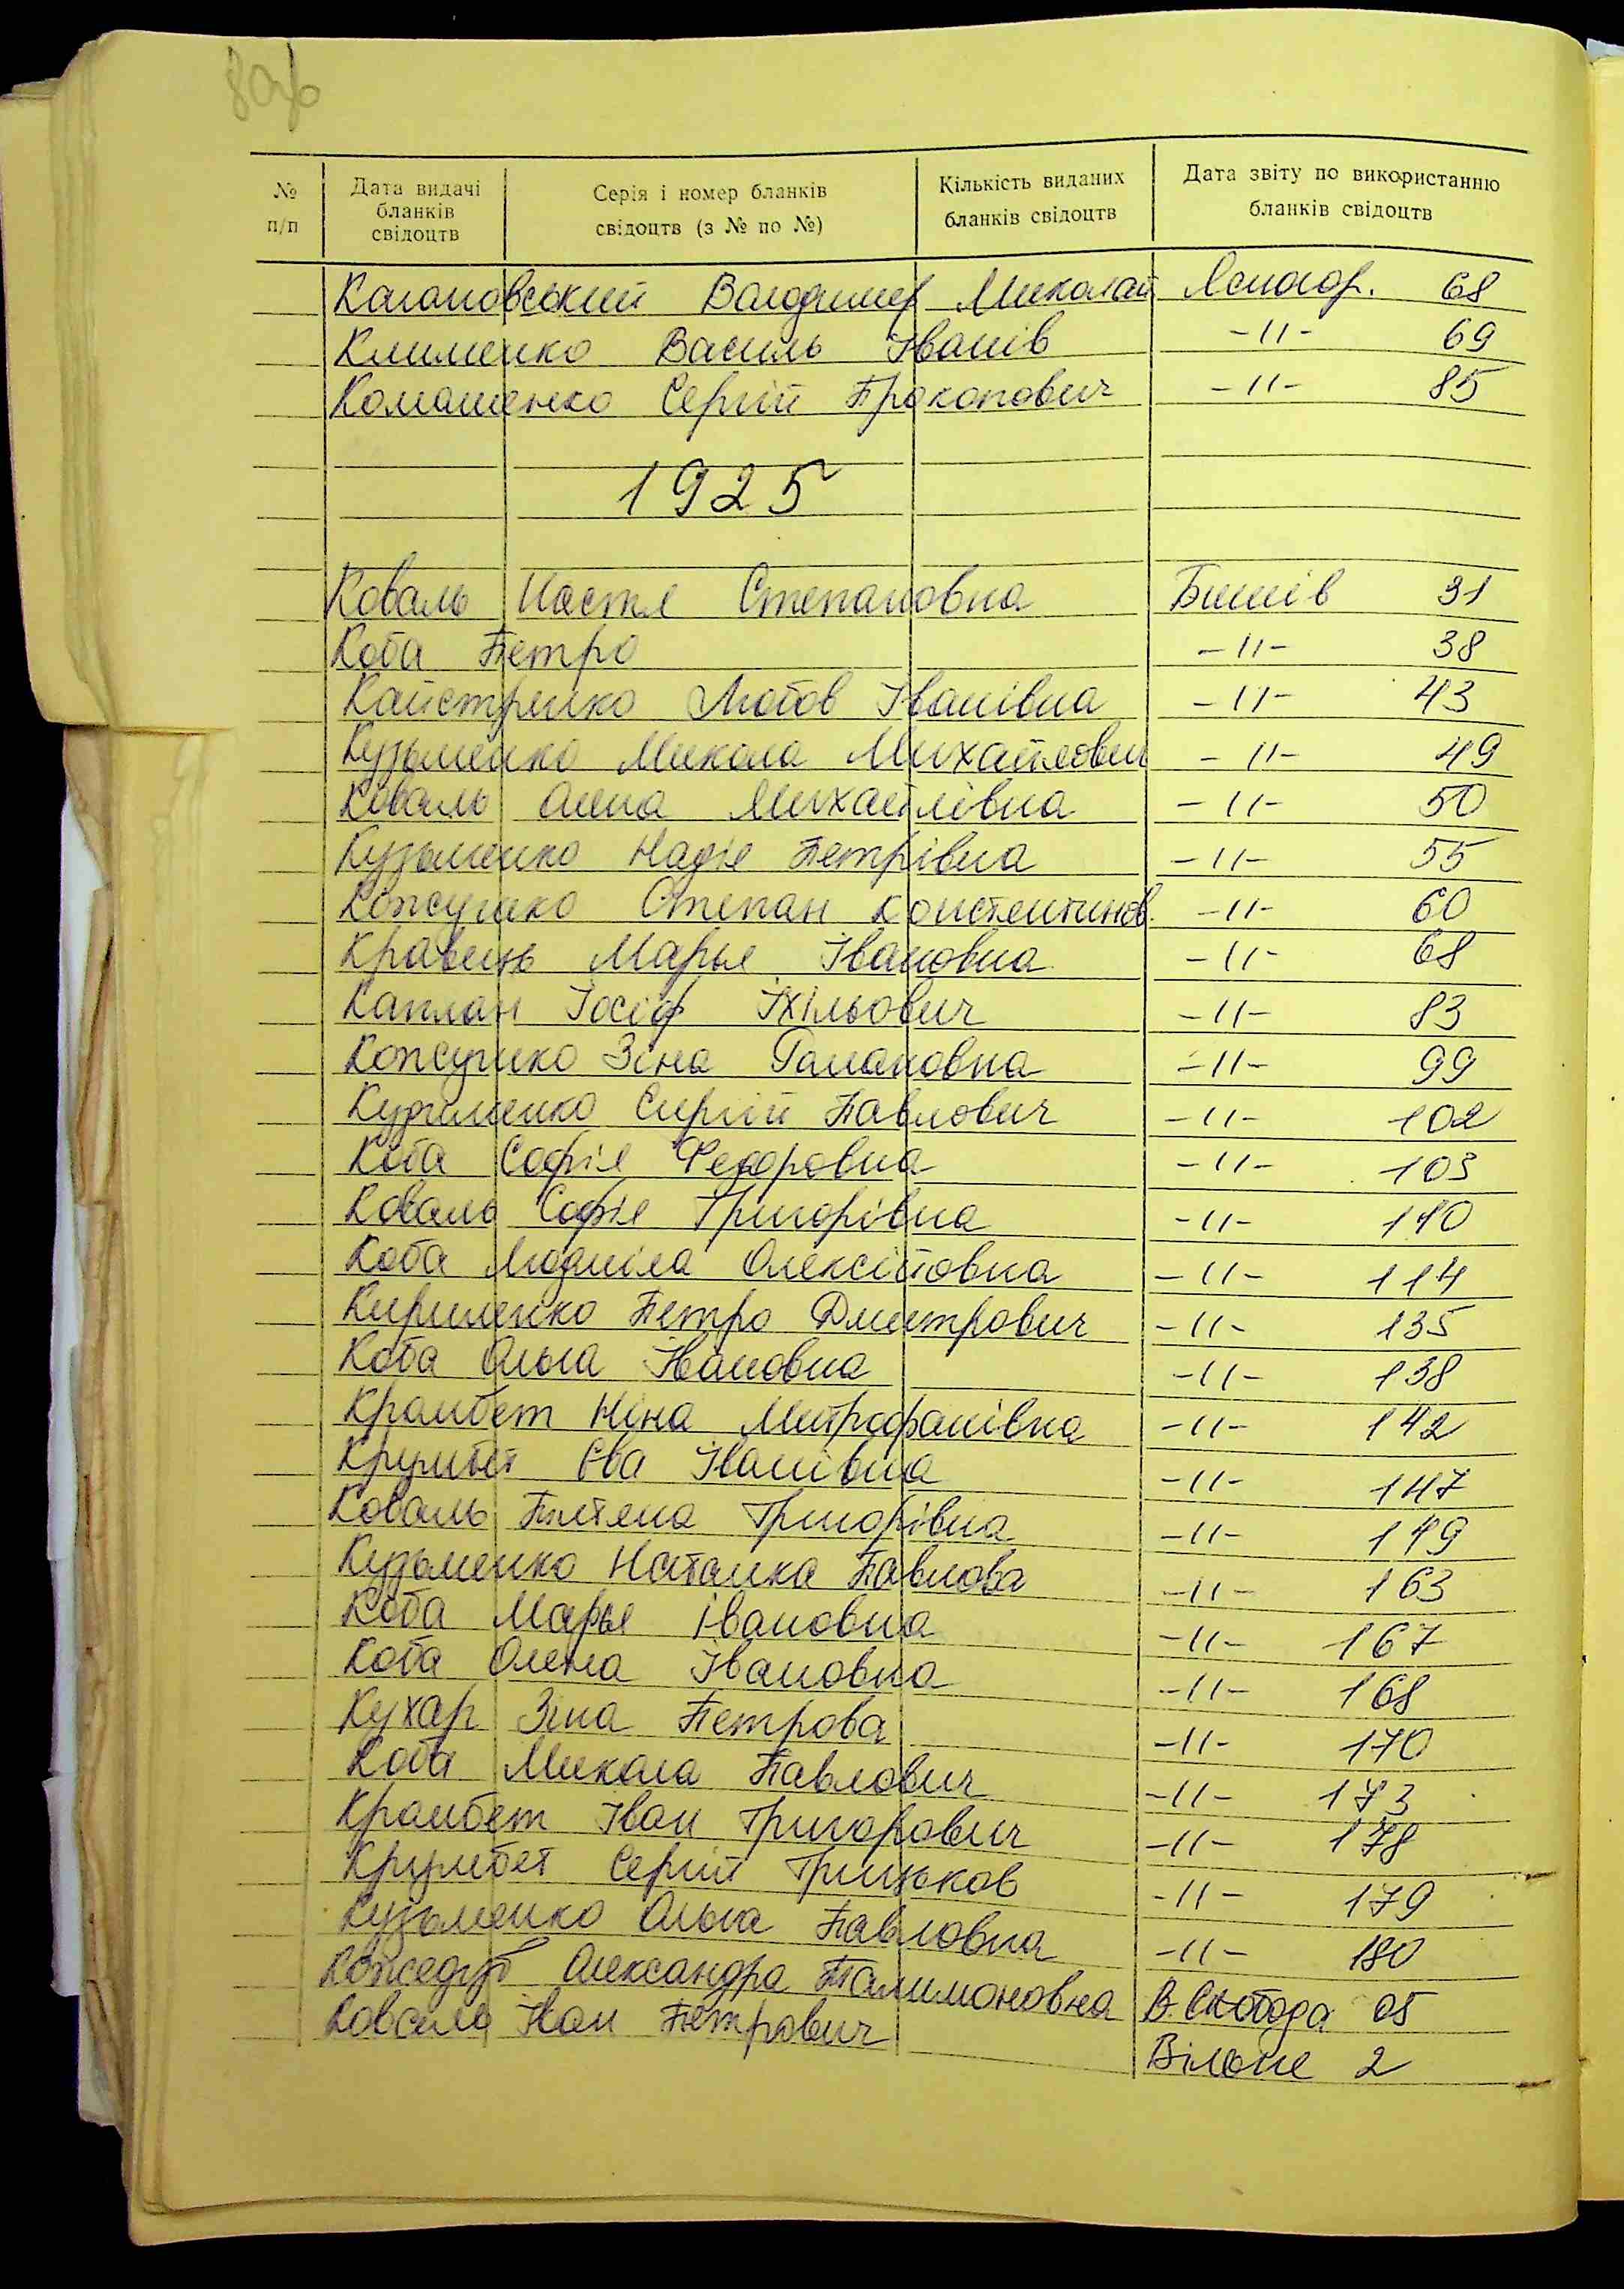 80зв
№ п/п | Дата видачі бланків свідоцтв | Серія і номер бланків свідоцтв (з № по №) | Кількість виданих бланків свідоцтв | Дата звіту по використанню бланків свідоцтв
Кагановський Володимер Миколай Ясногор. 68
Клименко Василь Іванів -//- 69
Комашенко Сергій Прокопович -//- 85
1925
Коваль Настя Степановна Бишів 31
Коба Петро -//- 38
Кайстренко Любов Іванівна -//- 43
Кузьменко Микола Михайлович -//- 49
Коваль Анна Михайлівна -//- 50
Кузьменко Надія Петрівна -//- 55
Кожушко Степан Констентинов. -//- 60
Кравець Марья Івановна -//- 68
Каплан Йосіф Іхільович -//- 83
Кожушко Зіна Романовна -//- 99
Кузьменко Сиргій Павлович -//- 102
Коба Софія Федоровна -//- 103
Коваль Софія Григорівна -//- 110
Коба Людміла Олексійовна -//- 114
Кириленко Петро Дмитрович -//- 135
Коба Ольга Івановна -//- 138
Крамбет Ніна Митрофанівна -//- 142
Крумбет Єва Іванівна -//- 147
Коваль Тітяна Григорівна -//- 149
Кузьменко Наталка Павлова -//- 163
Коба Марья Івановна -//- 167
Коба Олена Івановна -//- 168
Кухар Зіна Петрова -//- 170
Коба Микола Павлович -//- 173
Крамбет Іван Григорович -//- 178
Крумбет Сергій Грицьков -//- 179
Кузьменко Ольга Павловна -//- 180
Кожедуб Олександра Палимоновна В. Слобода 05
Іван Петрович Вільне 2